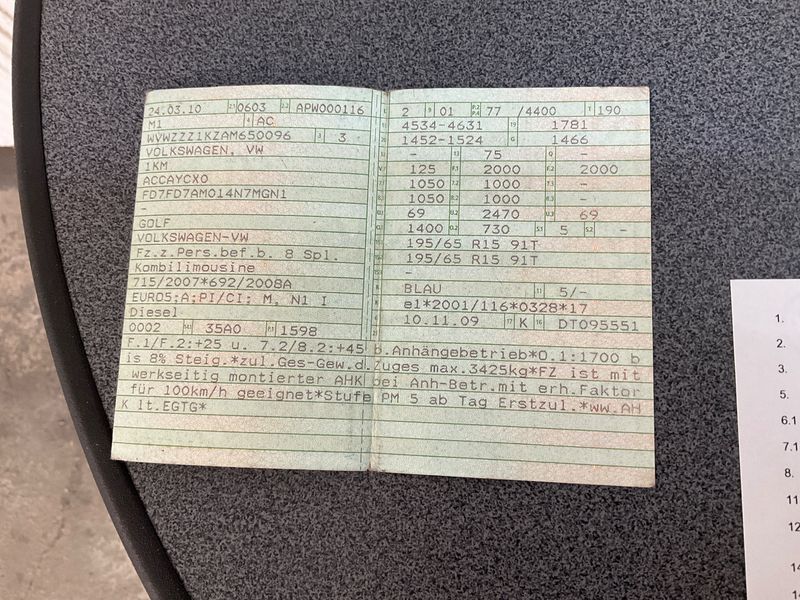 24.03.10 2.1 0603 2.2 APW000116
M1 4 AC
WVWZZZ1KZAM650096 3 3
VOLKSWAGEN, VW
1KM
ACCAYCX0
FD7FD7AM014N7MGN1
-
GOLF
VOLKSWAGEN-VW
Fz.z.Pers.bef.b. 8 Spl.
Kombilimousine
715/2007*692/2008A
EURO5;A;PI/CI; M, N1 I
Diesel
0002 35A0 P.1 1598
2 9 01 P.2 P.4 77 /4400 T 190
4534-4631 19 1781
1452-1524 G 1466
- 13 75 Q -
125 F.1 2000 F.2 2000
1050 7.2 1000 7.3 -
1050 8.2 1000 8.3 -
69 U.2 2470 U.3 69
1400 O.2 730 S.1 5 S.2 -
195/65 R15 91T
195/65 R15 91T
-
BLAU 11 5/-
e1*2001/116*0328*17
10.11.09 17 K 16 DT095551
F.1/F.2:+25 u. 7.2/8.2:+45 B.Anhängebetrieb*O.1:1700 b
is 8% Steig.*zul.Ges-Gew.d.Zuges max.3425kg*FZ ist mit
werkseitig montierter AHK bei Anh-Betr.mit erh.Faktor
für 100km/h geeignet*Stufe PM 5 ab Tag Erstzul.*ww.AH
K lt.EGTG*
1.
2.
3.
5.
6.1
7.1
8.
11
12
14